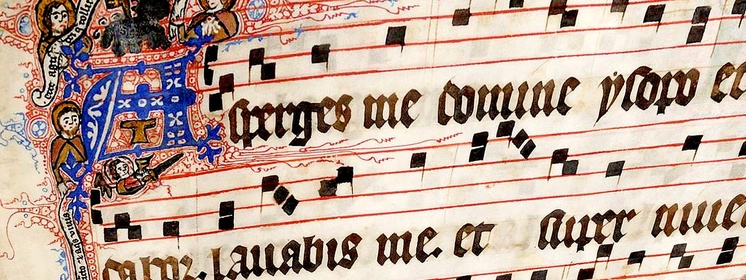 Asperges me domine ysopo et
lauabis me. et super niue